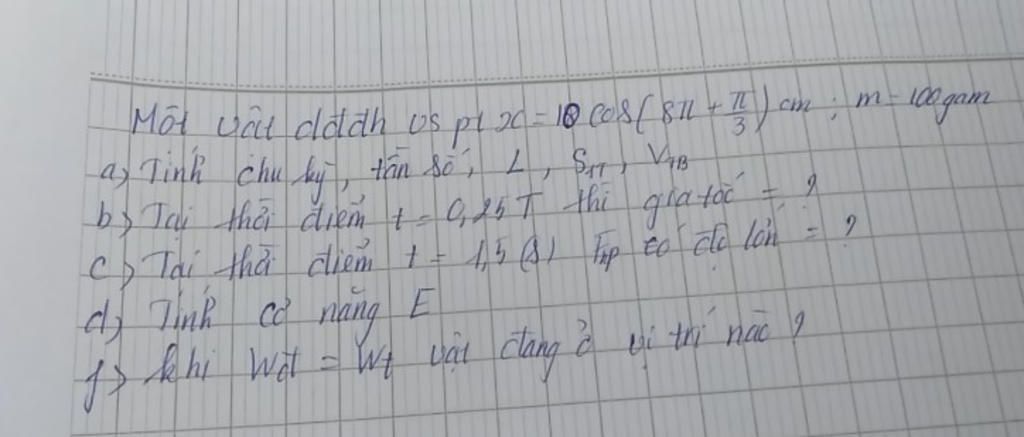 Một vật dđđh vs pt x = 10 cos(8π + π/3) cm ; m = 100gam
a) Tính chu kỳ, tần số, L, S1T, VTB
b) Tại thời điểm t = 0,25T thì gia tốc = ?
c) Tại thời điểm t = 1,5 (s) Fhp có độ lớn = ?
d) Tính cơ năng E
f) khi Wđ = Wt vật đang ở vị trí nào ?